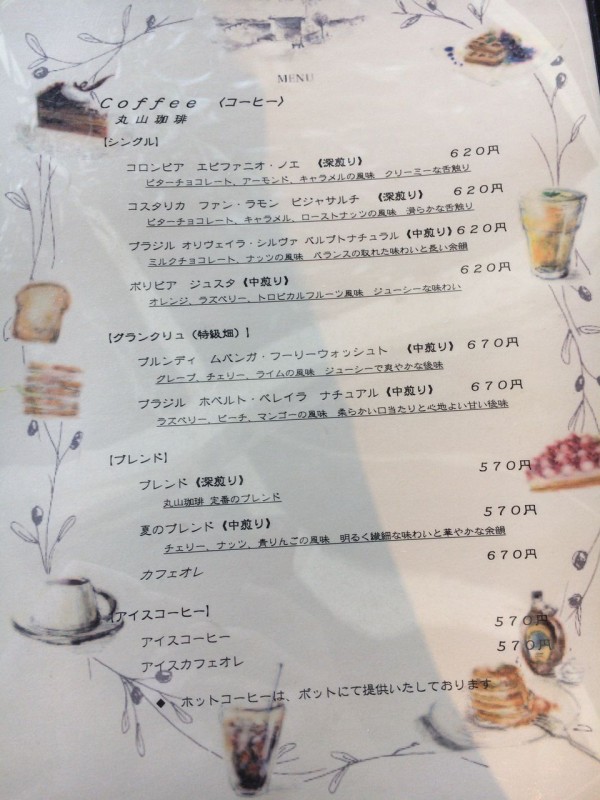 MENU
Coffee 〈コーヒー〉
丸山珈琲
【シングル】
コロンビア エピファニオ・ノエ 《深煎り》 620円
ビターチョコレート、アーモンド、キャラメルの風味 クリーミーな舌触り
コスタリカ ファン・ラモン ビジャサルチ 《深煎り》 620円
ビターチョコレート、キャラメル、ローストナッツの風味 滑らかな舌触り
ブラジル オリヴェイラ・シルヴァ パルプトナチュラル 《中煎り》 620円
ミルクチョコレート、ナッツの風味 バランスの取れた味わいと長い余韻
ボリビア ジュスタ 《中煎り》 620円
オレンジ、ラズベリー、トロピカルフルーツ風味 ジューシーな味わい
【グランクリュ（特級畑）】
ブルンディ ムバンガ・フーリーウォッシュト 《中煎り》 670円
グレープ、チェリー、ライムの風味 ジューシーで爽やかな後味
ブラジル ホベルト・ペレイラ ナチュアル 《中煎り》 670円
ラズベリー、ピーチ、マンゴーの風味 柔らかい口当たりと心地よい甘い後味
【ブレンド】
ブレンド 《深煎り》 570円
丸山珈琲 定番のブレンド
夏のブレンド 《中煎り》 570円
チェリー、ナッツ、青りんごの風味 明るく繊細な味わいと華やかな余韻
カフェオレ 670円
【アイスコーヒー】
アイスコーヒー 570円
アイスカフェオレ 570円
◆ ホットコーヒーは、ポットにて提供いたしております